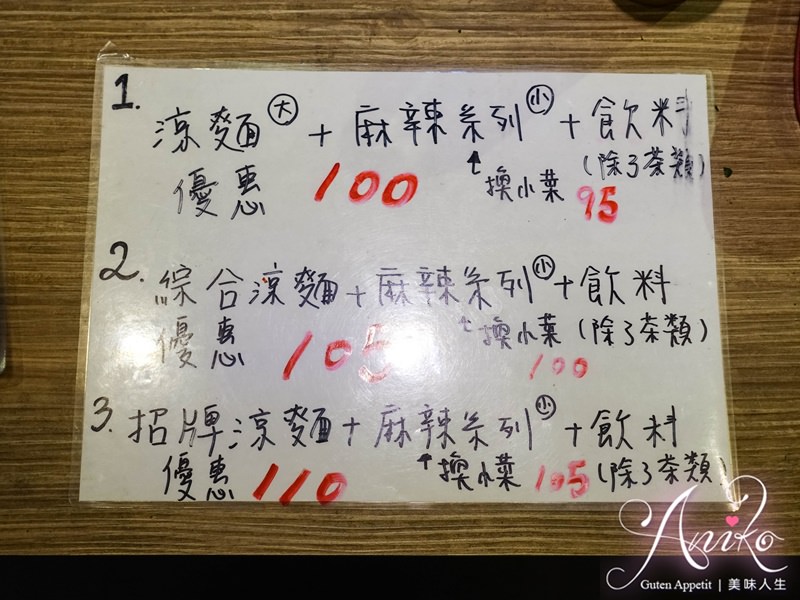 1. 涼麵(大)+麻辣系列(小)+飲料
(除了茶類)
優惠 100 ↑換小菜 95
2. 綜合涼麵+麻辣系列(小)+飲料
優惠 105 ↑換小菜 (除了茶類)
100
3. 招牌涼麵+麻辣系列(小)+飲料
優惠 110 ↑換小菜 105 (除了茶類)
Aniko
Guten Appetit | 美味人生